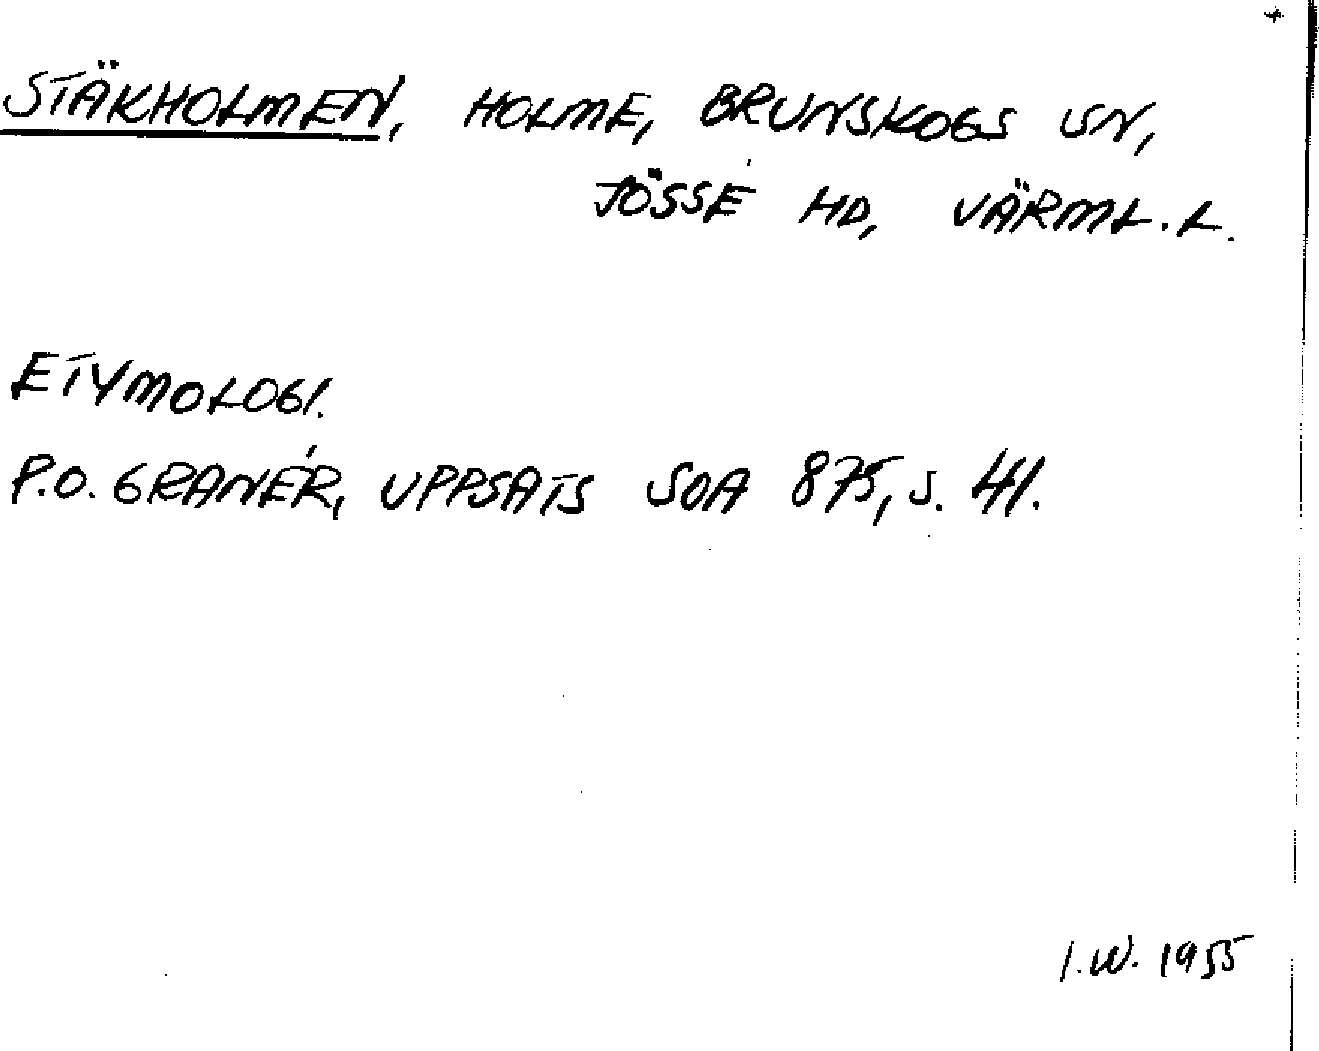 STÄKHOLMEN, HOLME, BRUNSKOGS SN,
JÖSSE HD, VÄRML. L.
ETYMOLOGI.
P.O. GRANÉR, UPPSATS SOA 875, S. 41.
I.W. 1955